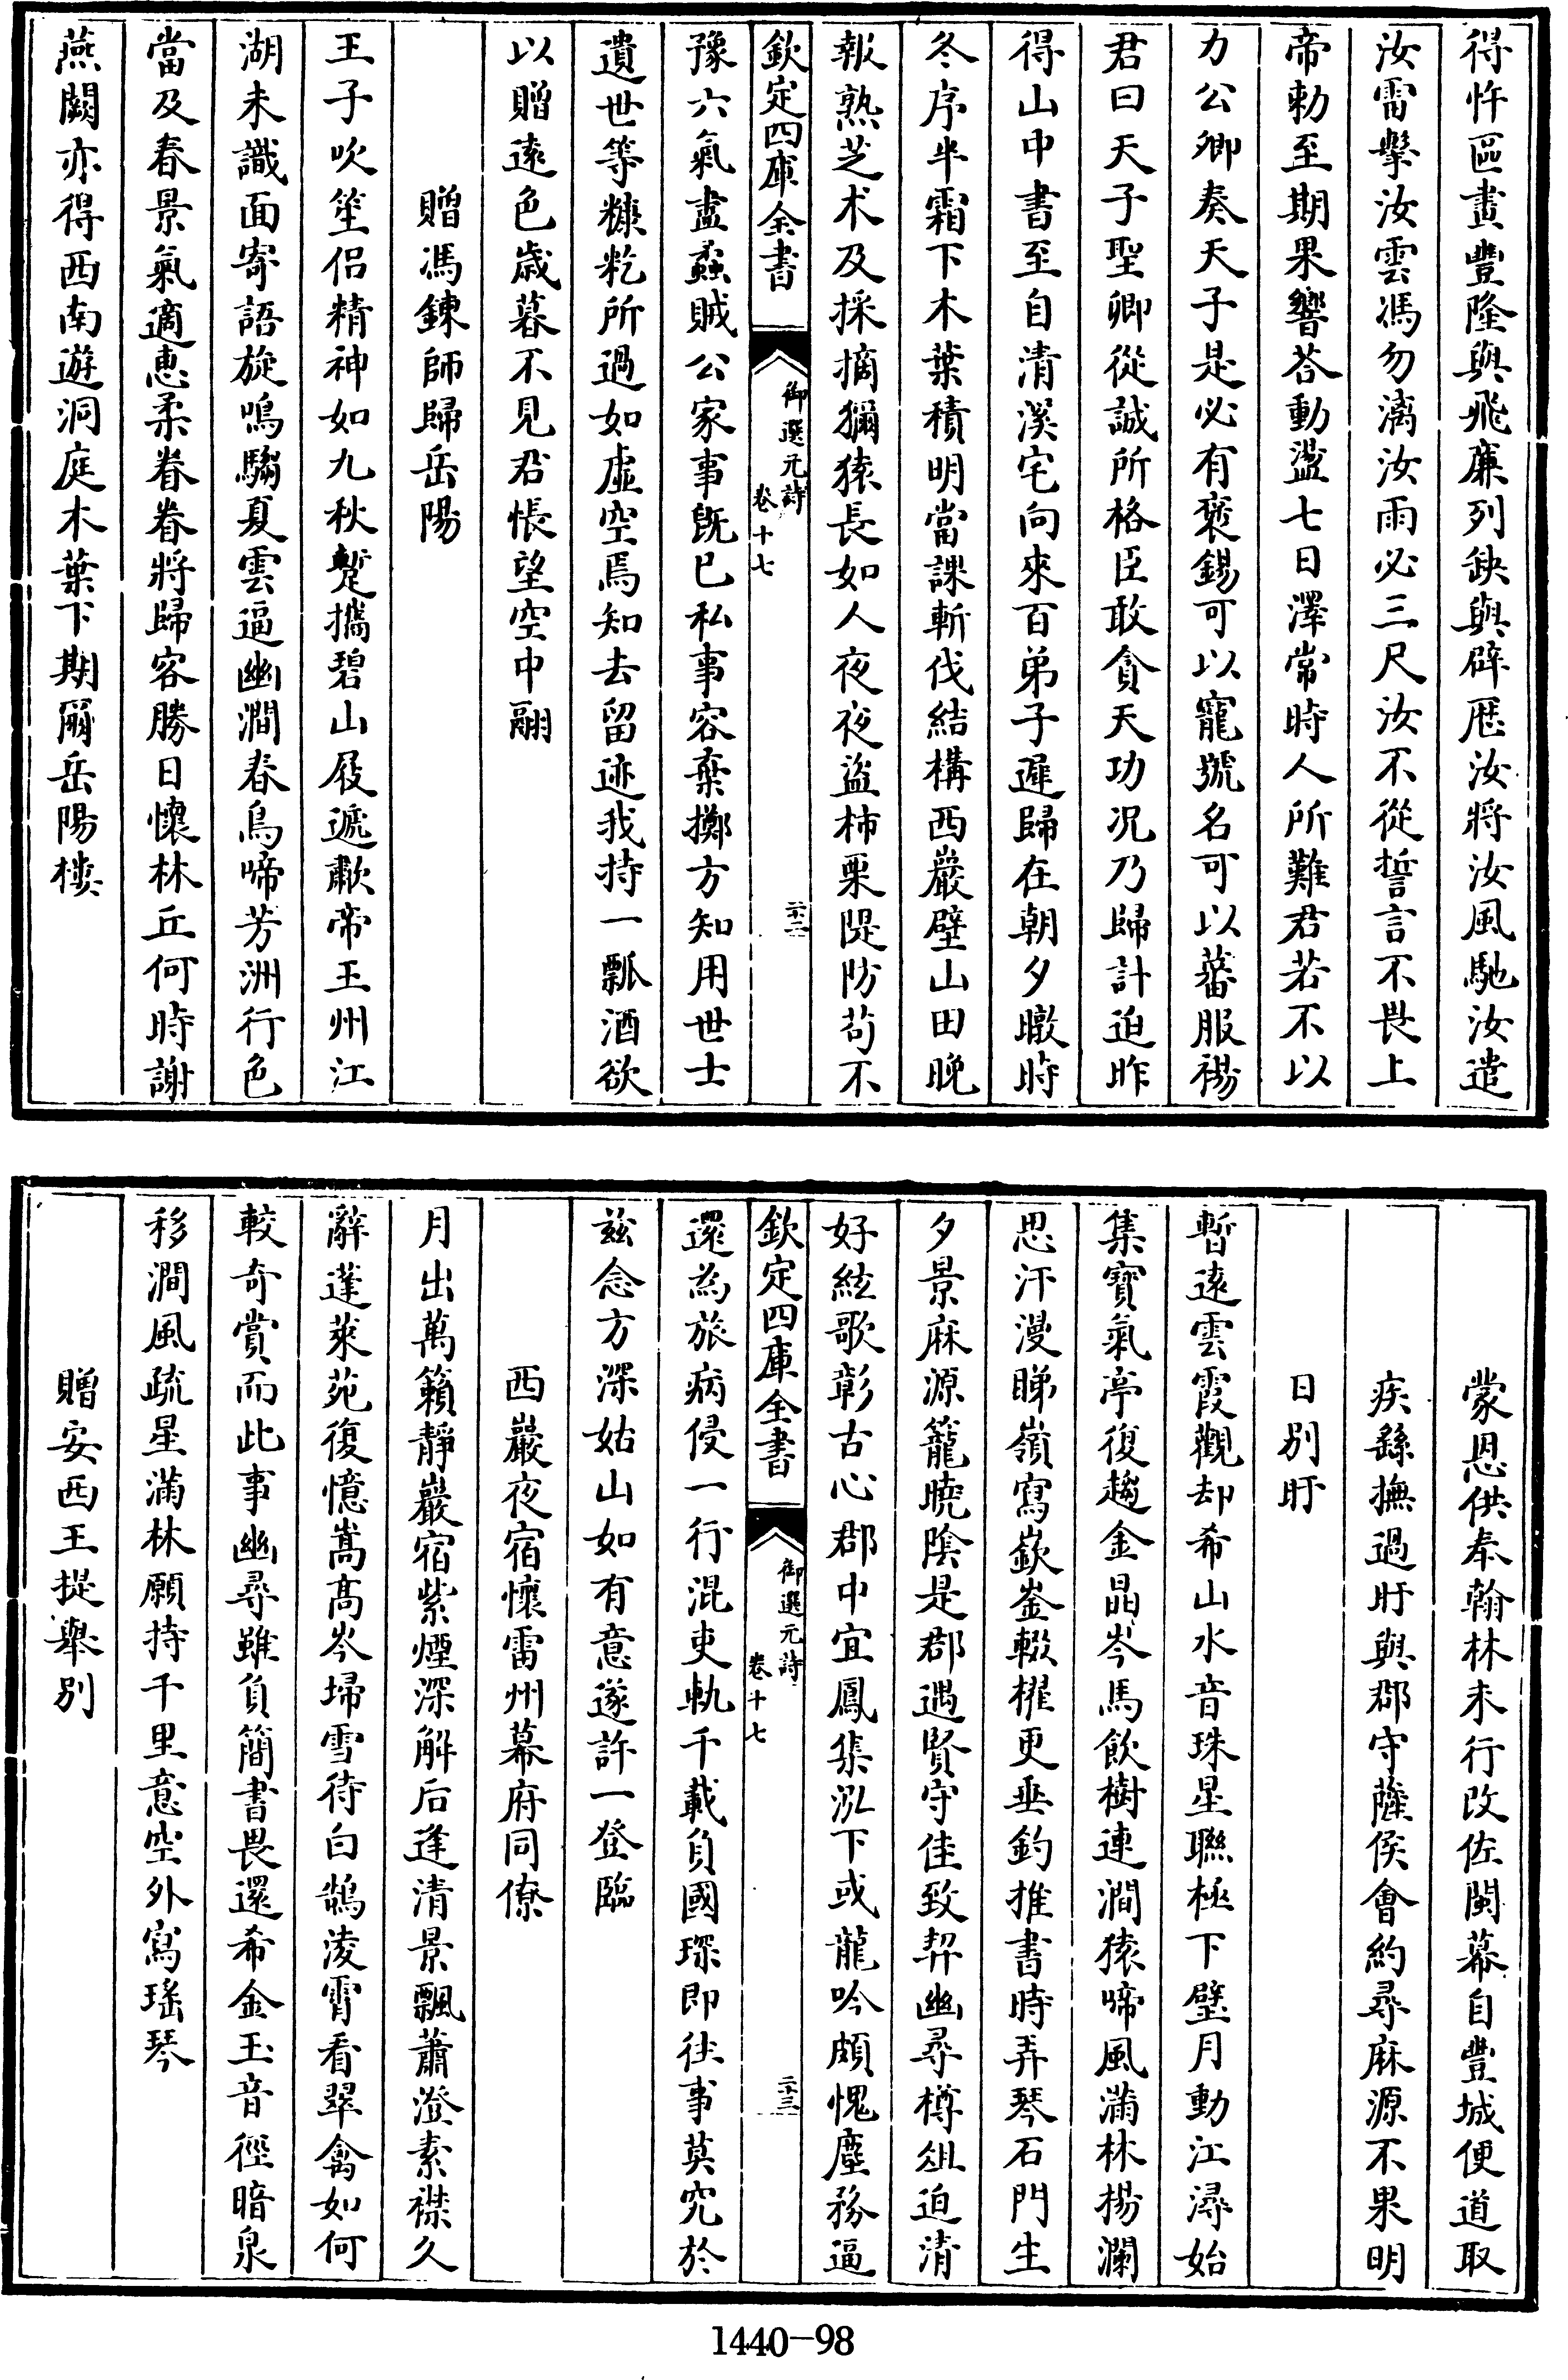 得忤區畫豐隆與飛廉列缺與辟歷汝將汝風馳汝遣
汝雷擊汝雲馮勿漓汝雨必三尺汝不從誓言不畏上
帝勅至期果響荅動盪七日澤常時人所難君若不以
力公卿奏天子是必有褒錫可以寵號名可以蕃服裼
君曰天子聖卿從誠所格臣敢貪天功况乃歸計迫昨
得山中書至自清溪宅向來百弟子遲歸在朝夕暾時
冬序半霜下木葉積明當課斬伐結構西巖壁山田晚
報熟芝木及採摘獼猿長如人夜夜盜柿栗隄防苟不
欽定四庫全書
御選元詩
卷十七
二十二
豫六氣盡蟊賊公家事既已私事容棄擲方知用世士
遺世等糠籺所過如虛空焉知去留迹我持一瓢酒欲
以贈遠色歲暮不見君悵望空中翮
贈馮鍊師歸岳陽
王子吹笙侶精神如九秋蹔攜碧山屐遞歗帝王州江
湖未識面寄語旋鳴騶夏雲逼幽澗春鳥啼芳洲行色
當及春景氣適惠柔眷眷將歸容勝日懷林丘何時謝
燕闕亦得西南遊洞庭木葉下期爾岳陽樓
蒙恩供奉翰林未行改佐閩幕自豐城便道取
疾繇撫過盱與郡守薩侯會約尋麻源不果明
日別盱
暫遠雲霞觀却希山水音珠星聯極下璧月動江潯始
集寶氣亭復趨金晶岑馬飲樹連澗猿啼風滿林楊瀾
思汗漫睇嶺寫嶔崟輟櫂更垂釣推書時弄琴石門生
夕景麻源籠曉陰是郡遇賢守佳致契幽尋樽俎迫清
好絃歌彰古心郡中宜鳳集泓下或龍吟頗愧塵務逼
欽定四庫全書
御選元詩
卷十七
二十三
還為旅病侵一行混吏軌千載負國琛即往事莫究於
茲念方深姑山如有意遂許一登臨
西巖夜宿懷雷州幕府同僚
月出萬籟靜巖宿紫煙深解后逢清景飄蕭澄素襟久
辭蓬萊苑復憶嵩高岑埽雪待白鵠淩霄看翠禽如何
較奇賞而此事幽尋雖負簡書畏還希金玉音徑暗泉
移澗風疏星滿林願持千里意空外寫瑤琴
贈安西王提舉別
1440-98